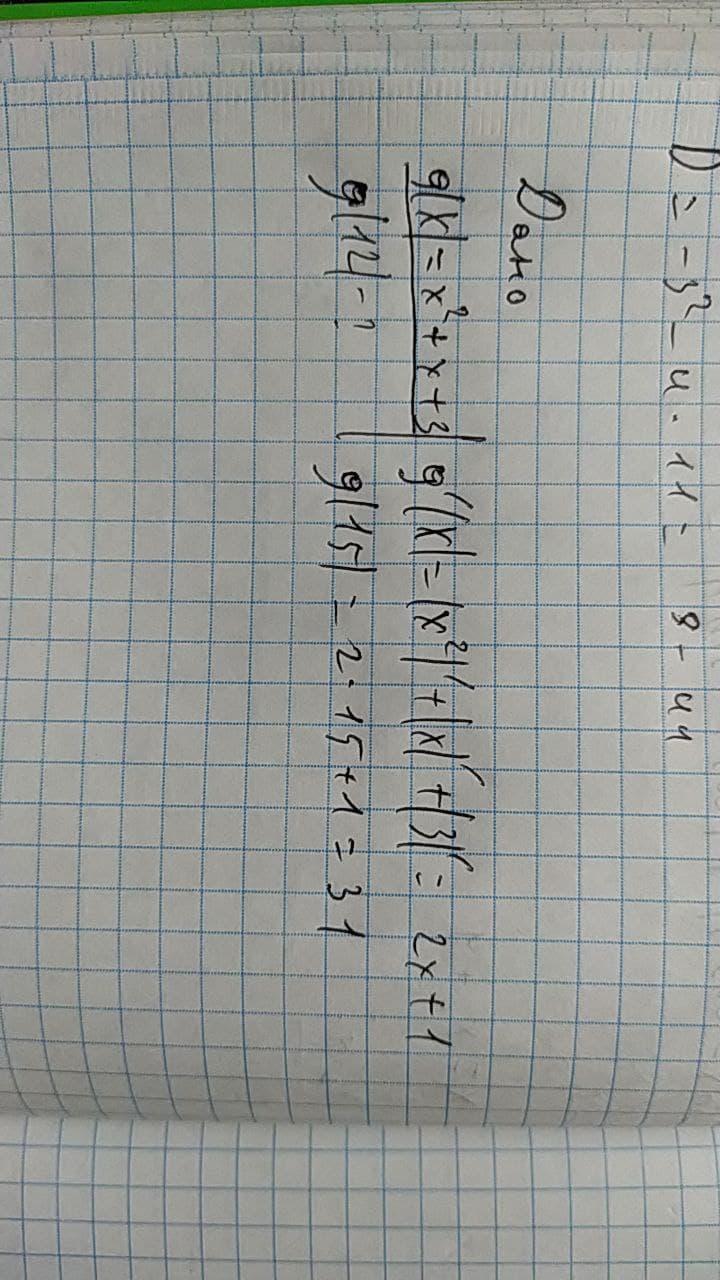 D = -3² - 4 · 11 = 9 - 44
Дано
g(x) = x² + x + 3
g'(x) = (x²)' + (x)' + (3)' = 2x + 1
g(12) - ?
g(15) = 2 · 15 + 1 = 31